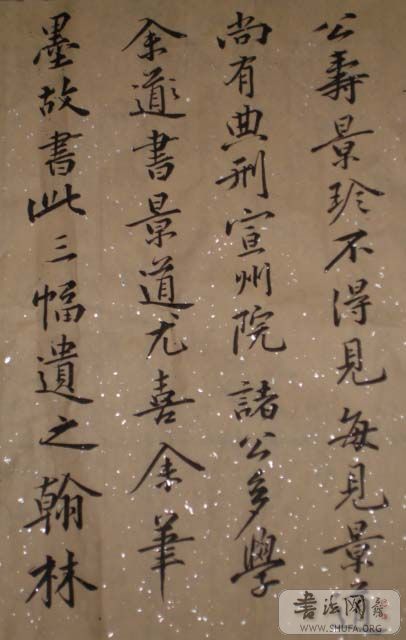 公壽景珍不得見每見景道
尚有典刑宣州院諸公多學
余道書景道尤喜余筆
墨故書此三幅遺之翰林
書法网
WWW.SHUFA.ORG